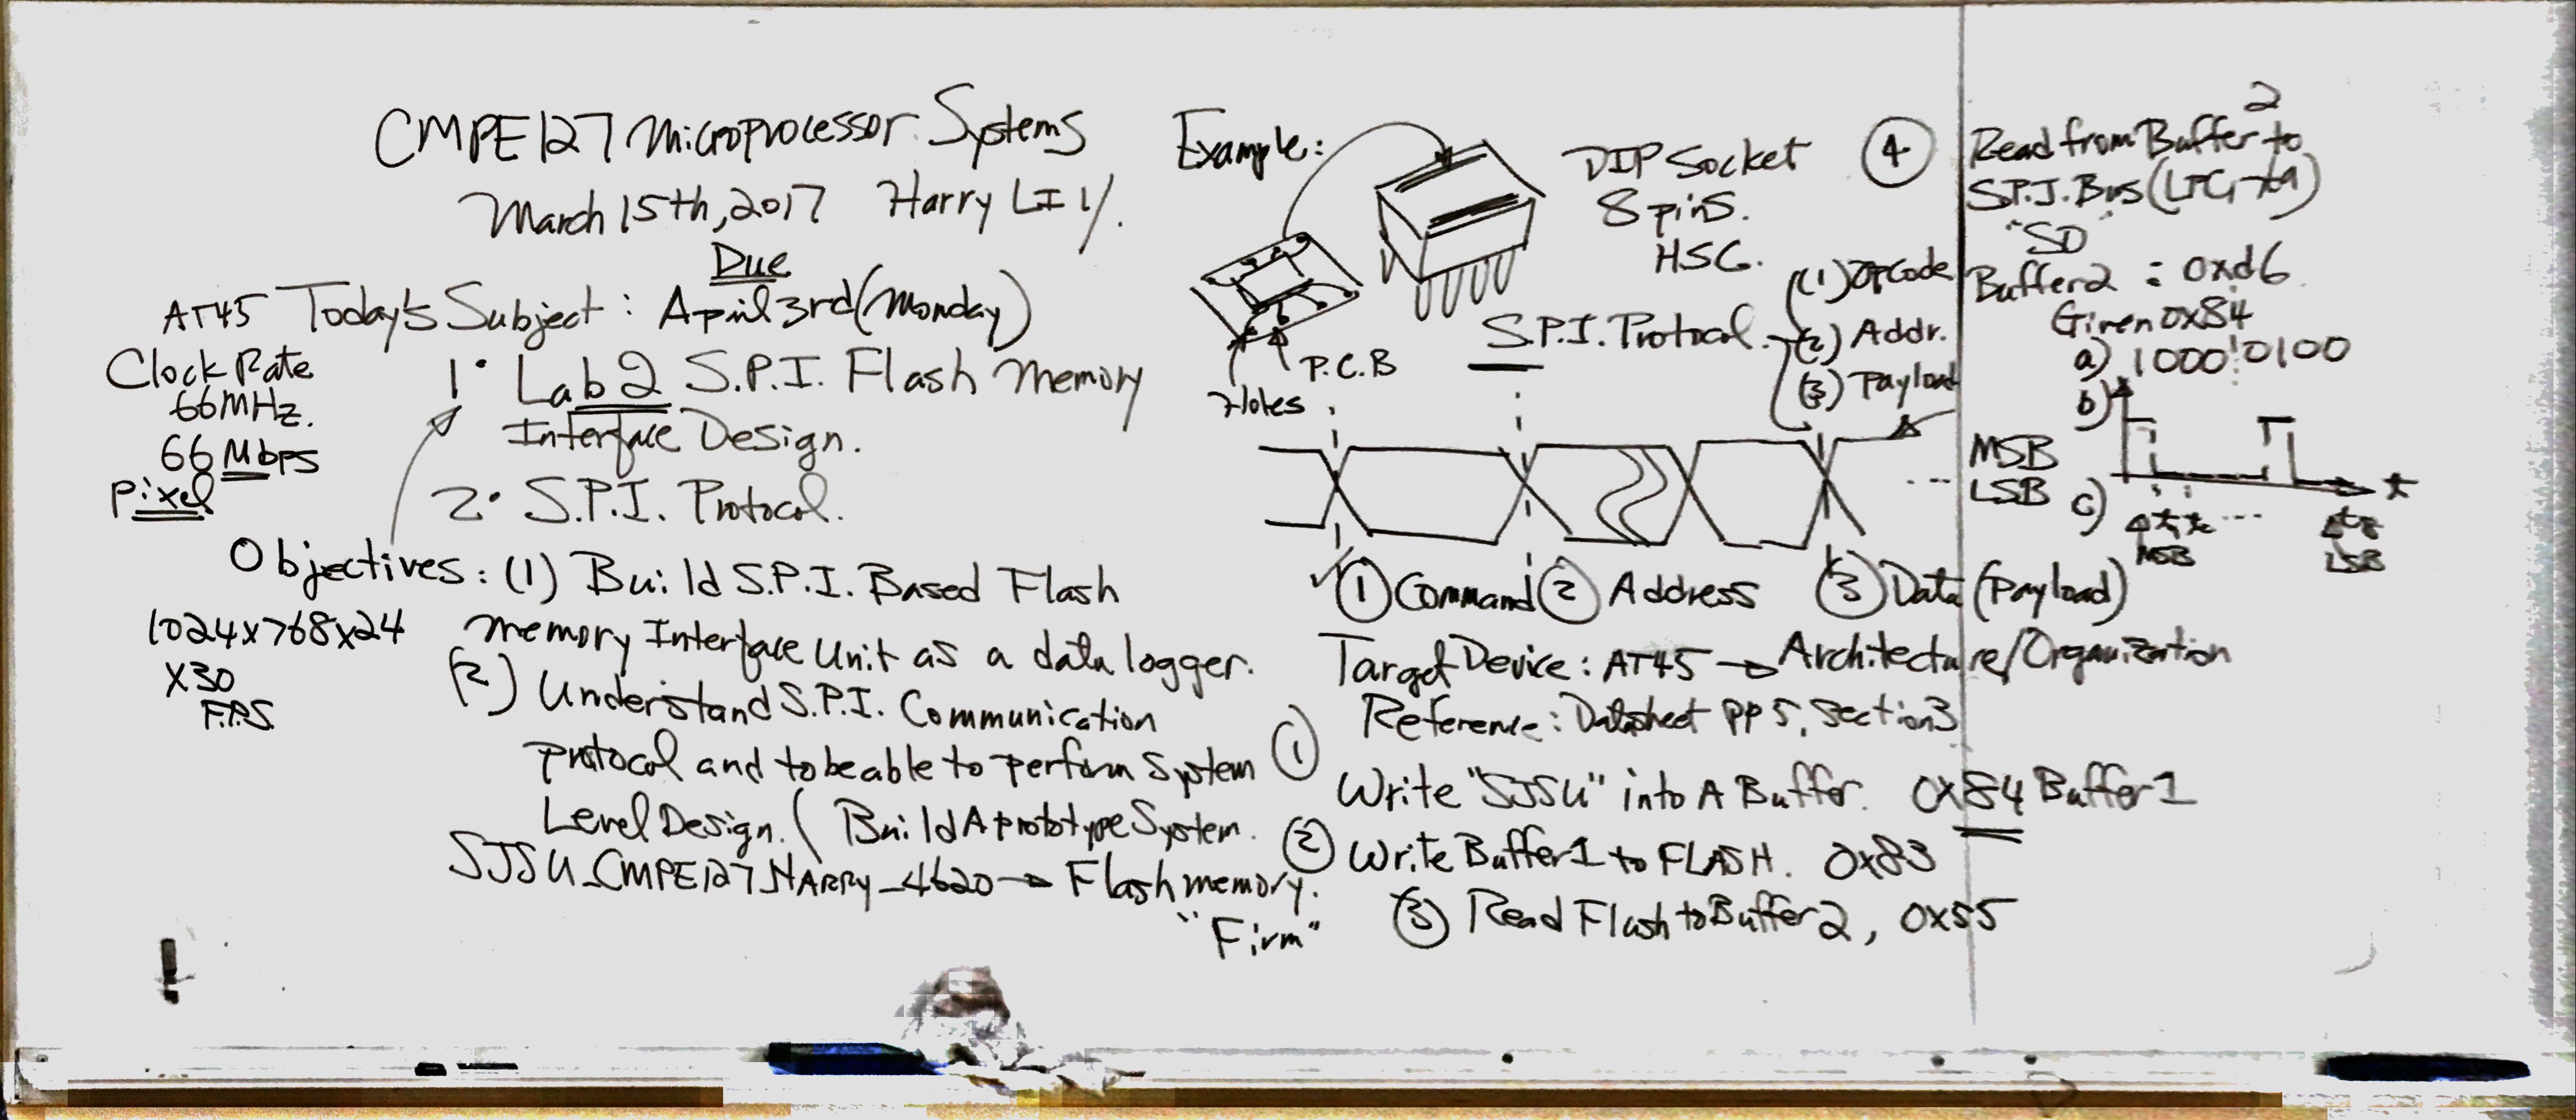 CMPE127 Microprocessor Systems
March 15th, 2017 Harry LI 1/.
Due
AT45 Today's Subject : April 3rd (Monday)
Clock Rate
66MHz.
66 Mbps
Pixel
1. Lab 2 S.P.I. Flash Memory
Interface Design.
2. S.P.I. Protocol.
Objectives: (1) Build S.P.I. Based Flash
memory Interface Unit as a data logger.
1024x768x24
X30
F.P.S.
(2) Understand S.P.I. Communication
protocol and to be able to perform System
Level Design. ( Build A prototype System.
SJSU_CMPE127_HARRY_4620 → Flash memory.
"Firm"
Example:
DIP Socket
8 pins.
HSG.
P.C.B
Holes
S.P.I. Protocol.
(1) OPCode
(2) Addr.
(3) Payload
...
① Command ② Address ③ Data (Payload)
Target Device: AT45 → Architecture/Organization
Reference: Datasheet PP 5, Section 3
① Write "SJSU" into A Buffer. 0x84 Buffer 1
② Write Buffer 1 to FLASH. 0x83
③ Read Flash to Buffer 2, 0x55
2
④ Read from Buffer to
S.P.I. Bus
"SO"
Buffer 2 : 0xd6
Given 0x84
a) 1000 0100
b)
MSB
LSB
c)
t
...
MSB
LSB